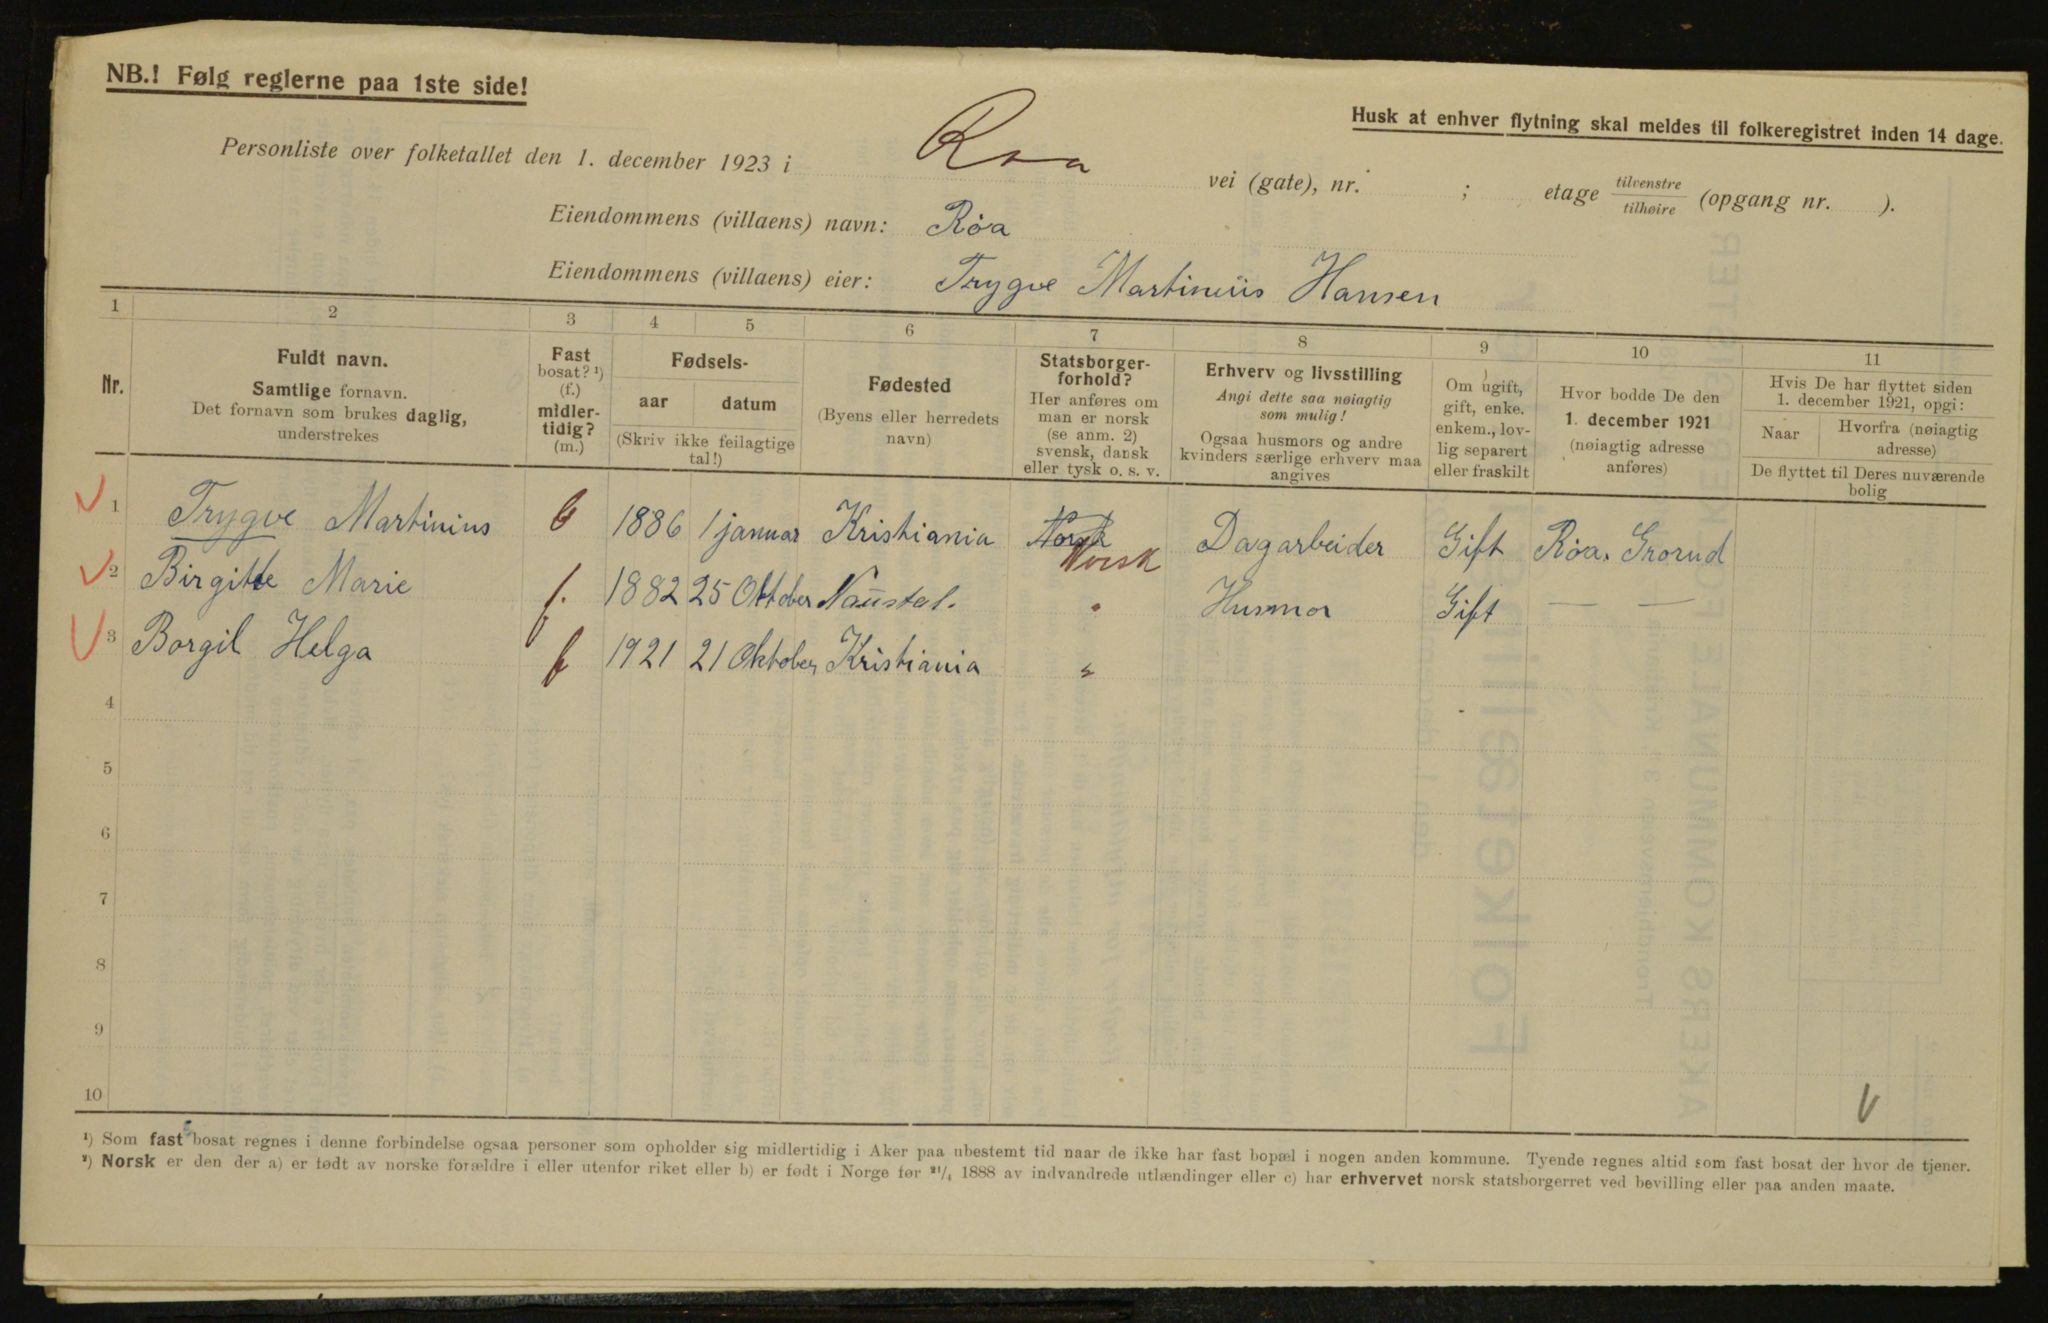 NB.! Følg reglerne paa 1ste side!
Husk at enhver flytning skal meldes til folkeregistret inden 14 dage.
Personliste over folketallet den 1. december 1923 i Roa vei (gate), nr. ; etage tilvenstre tilhøire (opgang nr. ).
Eiendommens (villaens) navn: Røa
Eiendommens (villaens) eier: Trygve Martinius Hansen
1 2 3 4 5 6 7 8 9 10 11
Nr.
Fuldt navn.
Samtlige fornavn.
Det fornavn som brukes daglig,
understrekes
Fast
bosat? ¹)
(f.)
midler-
tidig?
(m.)
Fødsels-
aar datum
(Skriv ikke feilagtige
tal!)
Fødested
(Byens eller herredets
navn)
Statsborger-
forhold?
Her anføres om
man er norsk
(se anm. 2)
svensk, dansk
eller tysk o. s. v.
Erhverv og livsstilling
Angi dette saa nøiagtig
som mulig!
Ogsaa husmors og andre
kvinders særlige erhverv maa
angives
Om ugift,
gift, enke.
enkem., lov-
lig separert
eller fraskilt
Hvor bodde De den
1. december 1921
(nøiagtig adresse
anføres)
Hvis De har flyttet siden
1. december 1921, opgi:
Naar
Hvorfra (nøiagtig
adresse)
De flyttet til Deres nuværende
bolig
1 Trygve Martinius 1886 1 januar Kristiania Norsk Norsk Dagarbeider Gift Røa. Grorud
2 Birgitte Marie f. 1882 25 Oktober Naustal. " Husmor Gift — —
3 Borgil Helga f 1921 21 Oktober Kristiania "
4
5
6
7
8
9
10
¹) Som fast bosat regnes i denne forbindelse ogsaa personer som opholder sig midlertidig i Aker paa ubestemt tid naar de ikke har fast bopæl i nogen anden kommune. Tyende regnes altid som fast bosat der hvor de tjener.
²) Norsk er den der a) er født av norske forældre i eller utenfor riket eller b) er født i Norge før ²¹/₄ 1888 av indvandrede utlændinger eller c) har erhvervet norsk statsborgerret ved bevilling eller paa anden maate.